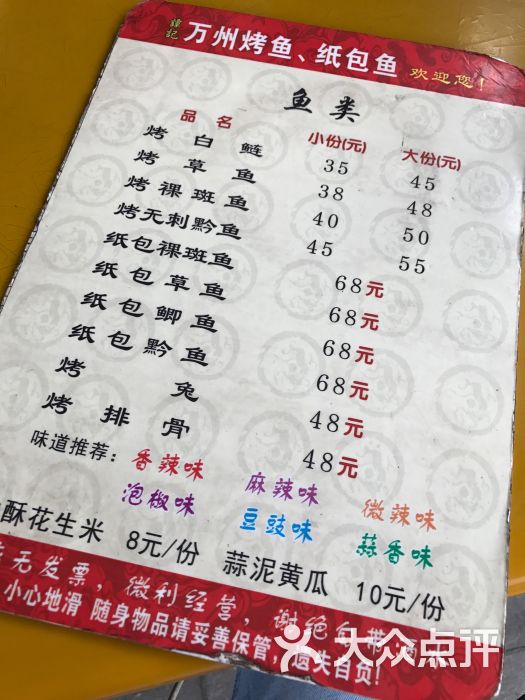 鐘記 万州烤鱼、纸包鱼 欢迎您!
鱼类
品名 小份(元) 大份(元)
烤白鲢 35 45
烤草鱼 38 48
烤裸斑鱼 40 50
烤无刺黔鱼 45 55
纸包裸斑鱼 68元
纸包草鱼 68元
纸包鲫鱼 68元
纸包黔鱼 68元
烤兔 48元
烤排骨 48元
味道推荐: 香辣味 麻辣味 微辣味
泡椒味 豆豉味 蒜香味
酥花生米 8元/份 蒜泥黄瓜 10元/份
无发票, 微利经营, 谢绝自带酒
小心地滑 随身物品请妥善保管, 遗失自负!
大众点评